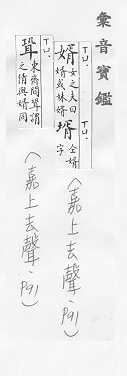 彙音寳鑑
ㄒㄩˋ
壻 仝婿字
ㄒㄩˋ
婿 女之夫曰婿或妹婿
聟 東齊間聟謂之倩與婿同
(嘉上去聲,P91)
(嘉上去聲,P91)